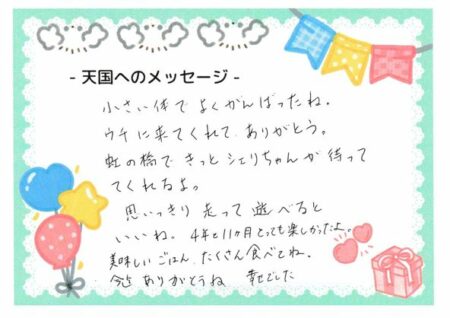 - 天国へのメッセージ -
小さい体で よくがんばったね。
ウチに来てくれて ありがとう。
虹の橋で きっと シェリちゃんが 待って
てくれるよ。
思いっきり 走って 遊べると
いいね。 4年と11ヶ月 とっても楽しかったよ。
美味しい ごはん たくさん食べてね。
今迄 ありがとうね 幸せでした